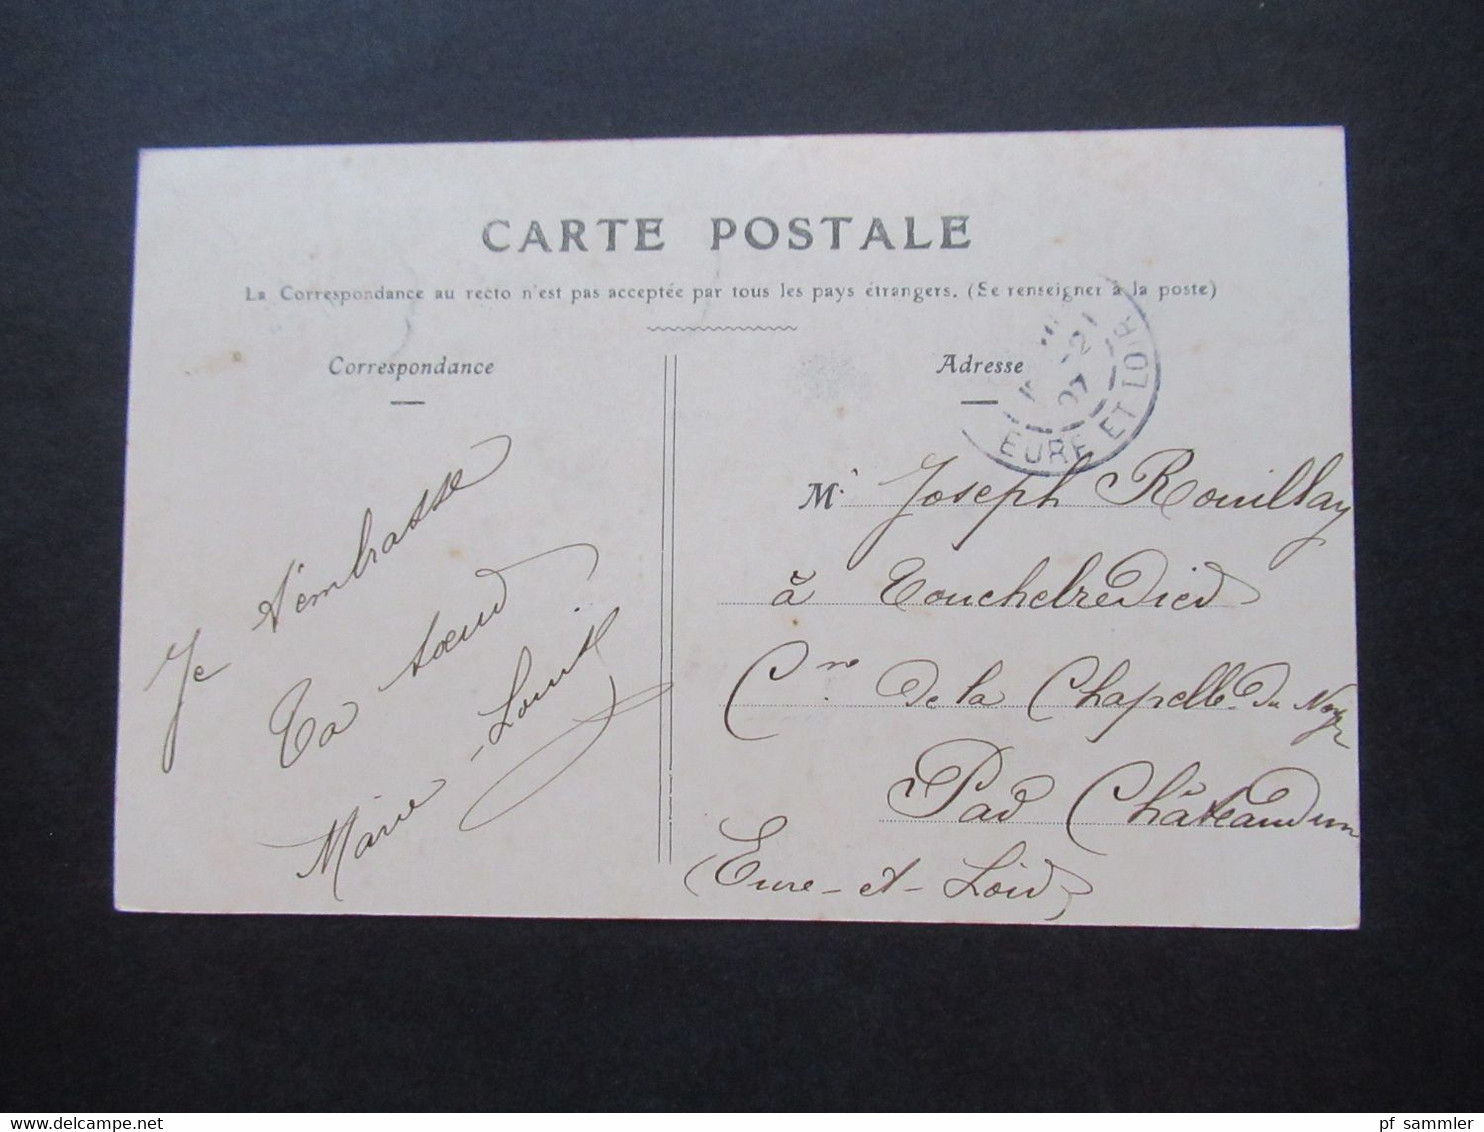 CARTE POSTALE
La Correspondance au recto n'est pas acceptée par tous les pays étrangers. (Se renseigner à la poste)
Correspondance
Je t'embrasse
Ta sœur
Marie-Louise
Adresse
EURE ET LOIR
21
07
M. Joseph Rouillay
à Touchebredier
Cne de la Chapelle-du Noyer
Par Châteaudun
(Eure-et-Loir)
www.delcampe.net
pf_sammler